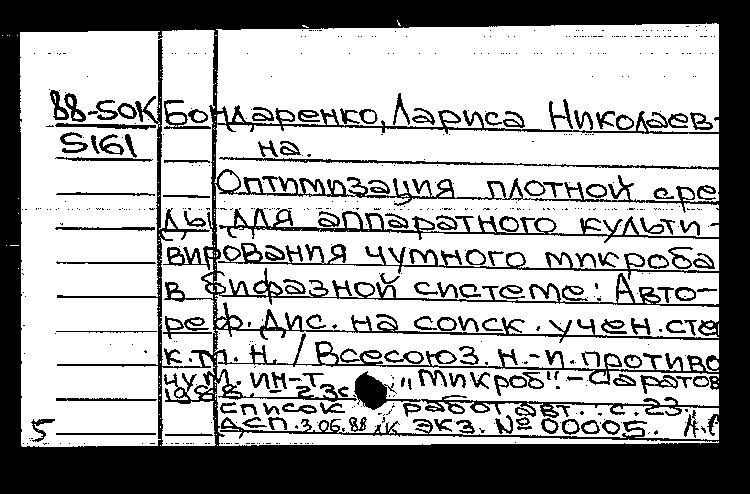 88-50К Бондаренко, Лариса Николаев-
5161 на.
Оптимизация плотной сре
ды для аппаратного культи-
вирования чумного микроба
в бифазной системе: Авто-
реф. дис. на соиск. учен. сте
к.м.н. / Всесоюз. н.-и. противо
чум. ин-т „Микроб“. - Саратов
1988. - 23с
список работ авт.: с.23.
5 ДСП. 3.06.88 экз. № 00005.